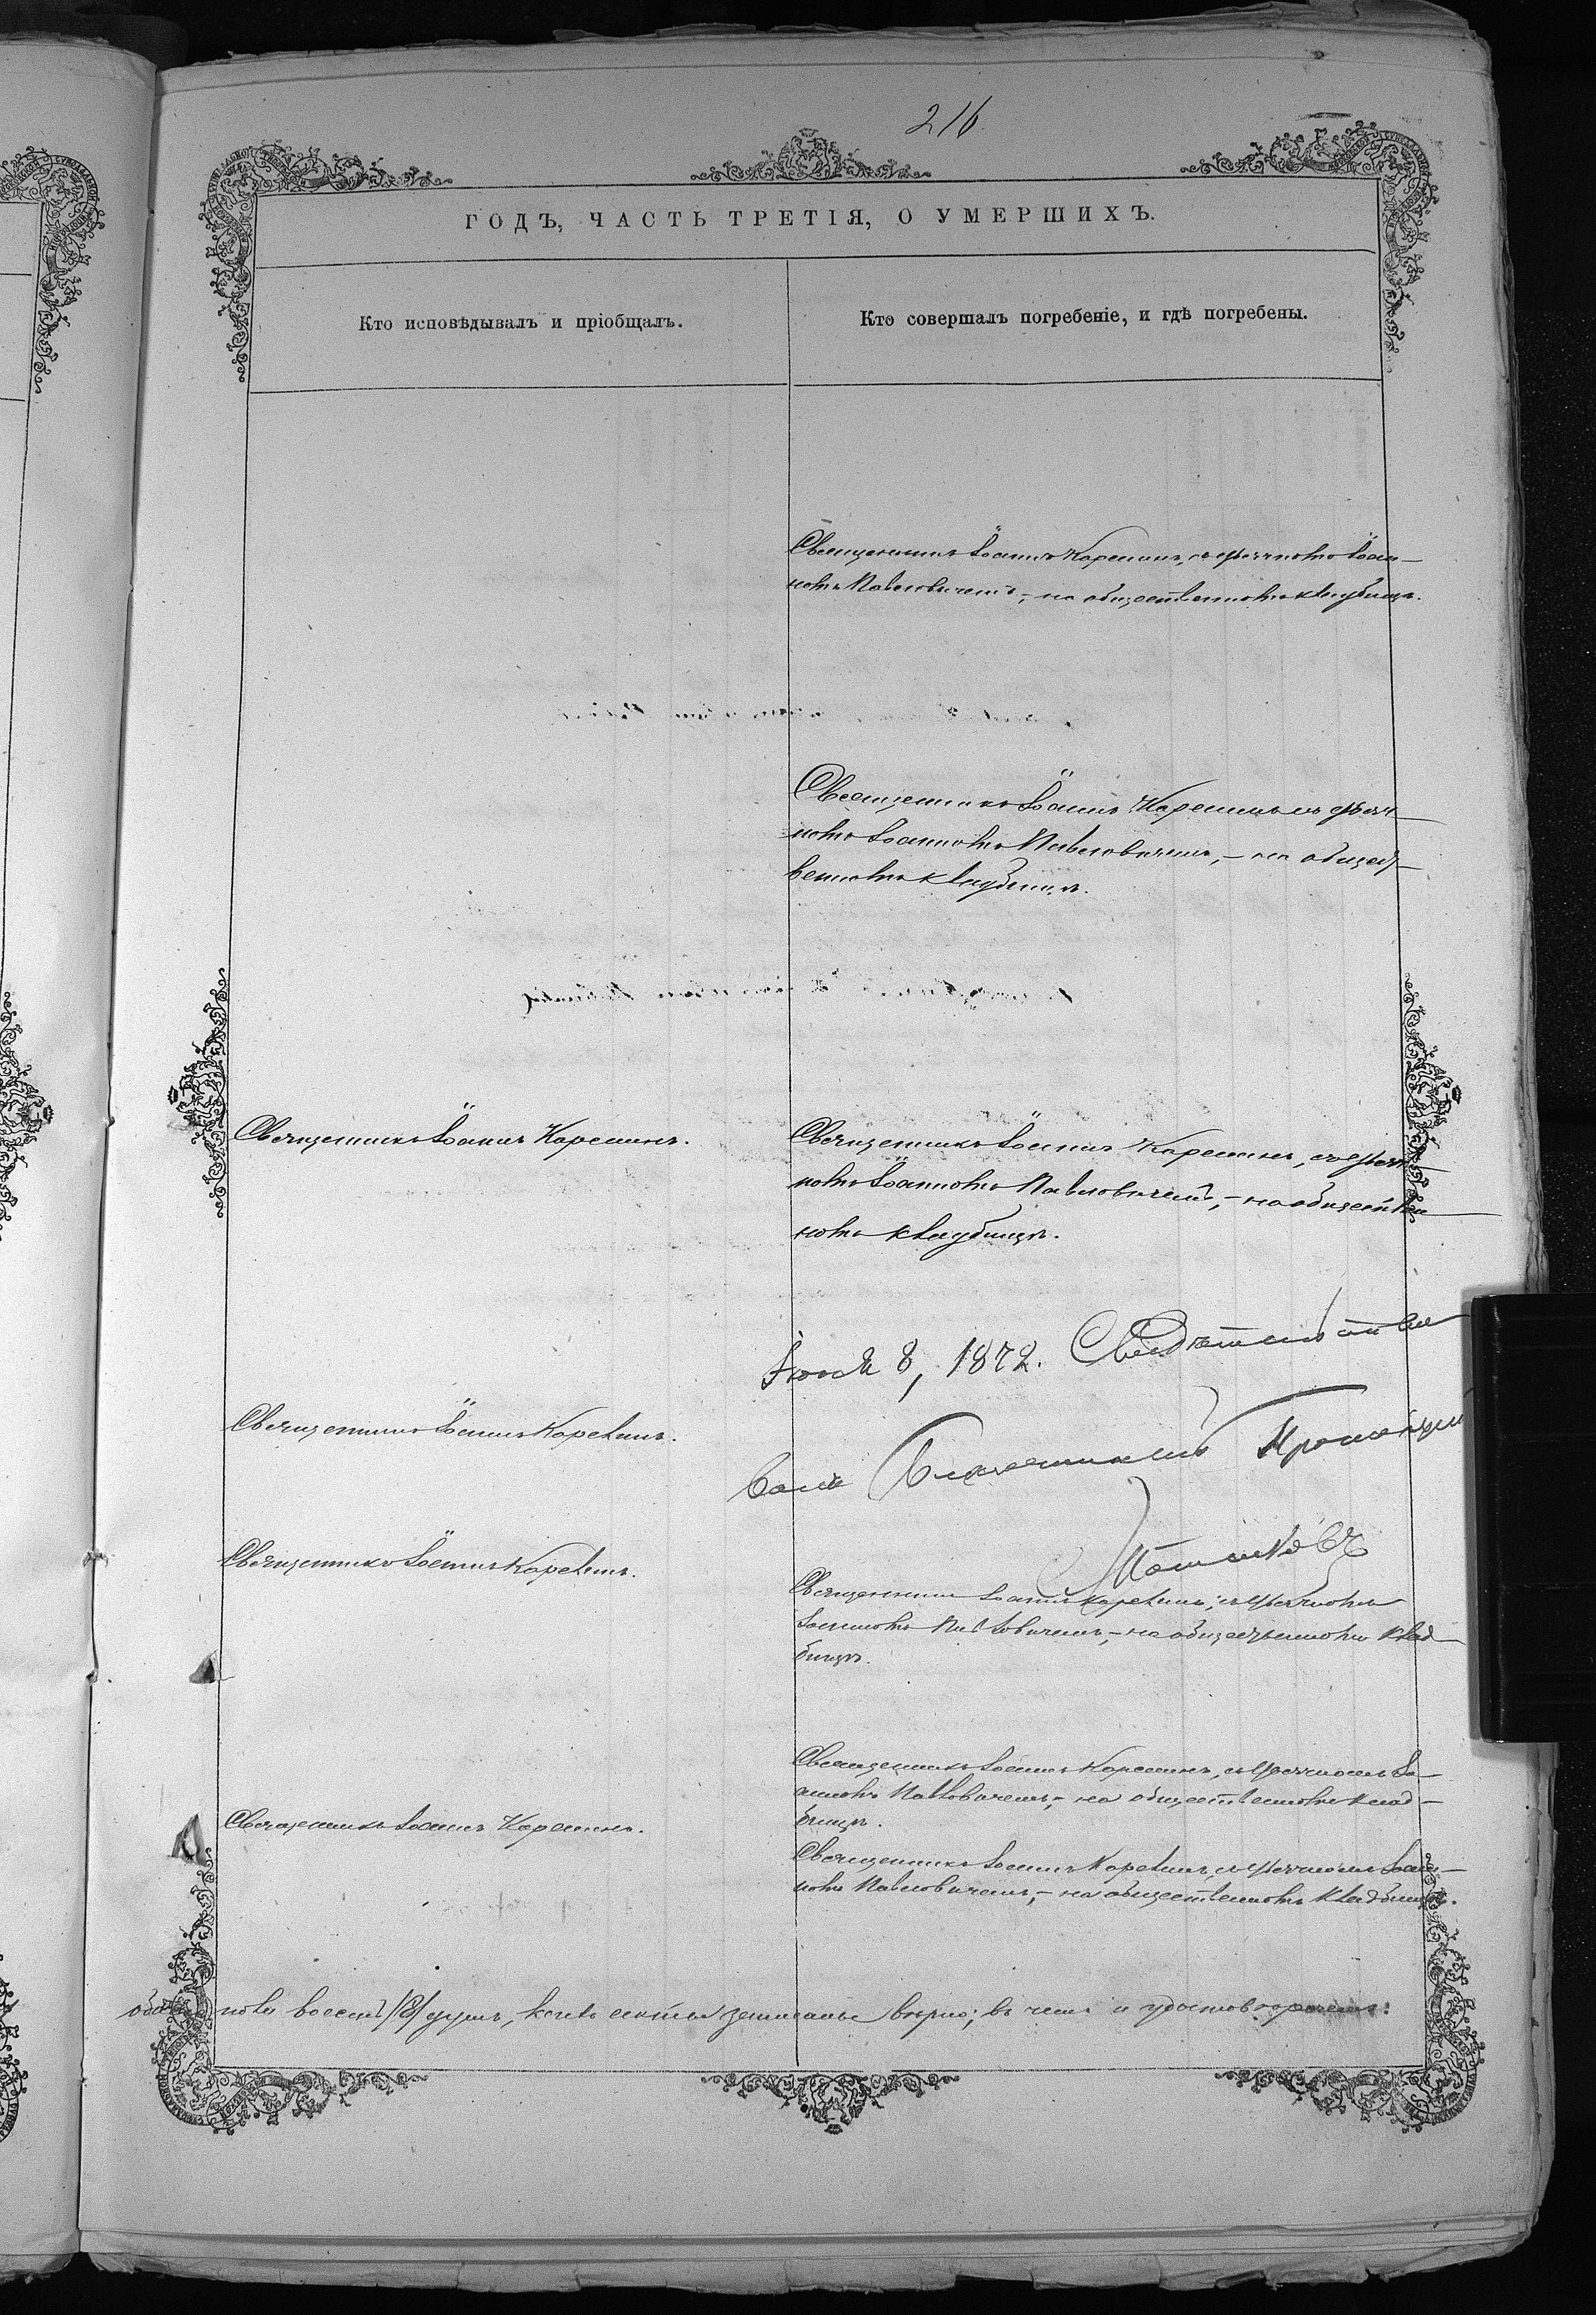 216
ГОДЪ, ЧАСТЬ ТРЕТІЯ, О УМЕРШИХЪ.
Кто исповѣдывалъ и пріобщалъ.
Кто совершалъ погребеніе, и гдѣ погребены.
Священникъ Іоаннъ Карелинъ, съ
номъ Павловичемъ, – на общественномъ кладбищѣ.
Священникъ Іоаннъ Карелинъ съ
номъ Іоанномъ Павловичемъ, – на общест–
венномъ кладбищѣ.
Священникъ Іоаннъ Карелинъ.
Священникъ Іоаннъ Карелинъ, съ
номъ Іоанномъ Павловичемъ, – на обществен–
номъ кладбищѣ.
Іюля 8, 1872. Свидѣтельство
валъ Благочинный
Священникъ Іоаннъ Карелинъ.
Священникъ Іоаннъ Карелинъ.
Священникъ Іоаннъ Карелинъ, съ
Іоанномъ Павловичемъ, – на общественномъ клад–
бищѣ.
Священникъ Іоаннъ Карелинъ, съ Іо–
анномъ Павловичемъ, – на общественномъ клад–
бищѣ.
Священникъ Іоаннъ Карелинъ.
Священникъ Іоаннъ Карелинъ, съ Іоан–
номъ Павловичемъ, – на общественномъ кладбищѣ.
пола восемь /8/ душъ, записаны вѣрно; въ чемъ и удостовѣряемъ: